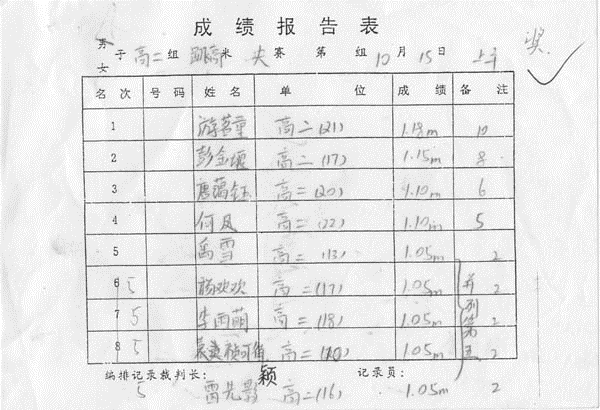 成绩报告表
奖
男女子高二组 跳高 米 决赛 第 组 10月15日 上午
名次 号码 姓名 单位 成绩 备注
1 游茗童 高二(21) 1.18m 10
2 彭金堰 高二(17) 1.15m 8
3 唐蔼钰 高二(20) 1.10m 6
4 何凤 高二(22) 1.10m 5
5 禹雪 高二(13) 1.05m 2
6 5 杨欢欢 高二(17) 1.05m 2
7 5 李雨萌 高二(18) 1.05m 2
8 5 高二 1.05m 2
并列第五
编排记录裁判长: 颖 记录员:
5 高二(16) 1.05m 2